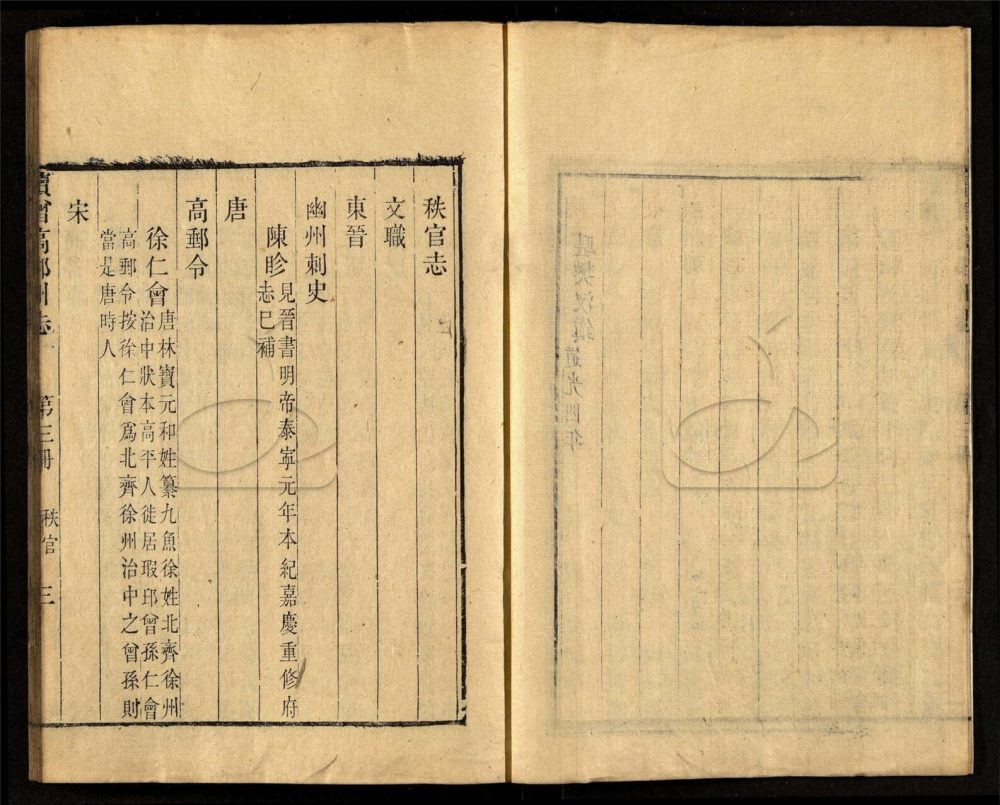 秩官志
文職
東晉
幽州刺史
陳眕見晉書明帝泰寧元年本紀嘉慶重修府
志已補
唐
高郵令
徐仁會唐林寶元和姓纂九魚徐姓北齊徐州
治中狀本高平人徙居瑕邱曾孫仁會
高郵令按徐仁會爲北齊徐州治中之曾孫則
當是唐時人
宋
續增高郵州志 第三冊 秩官 三